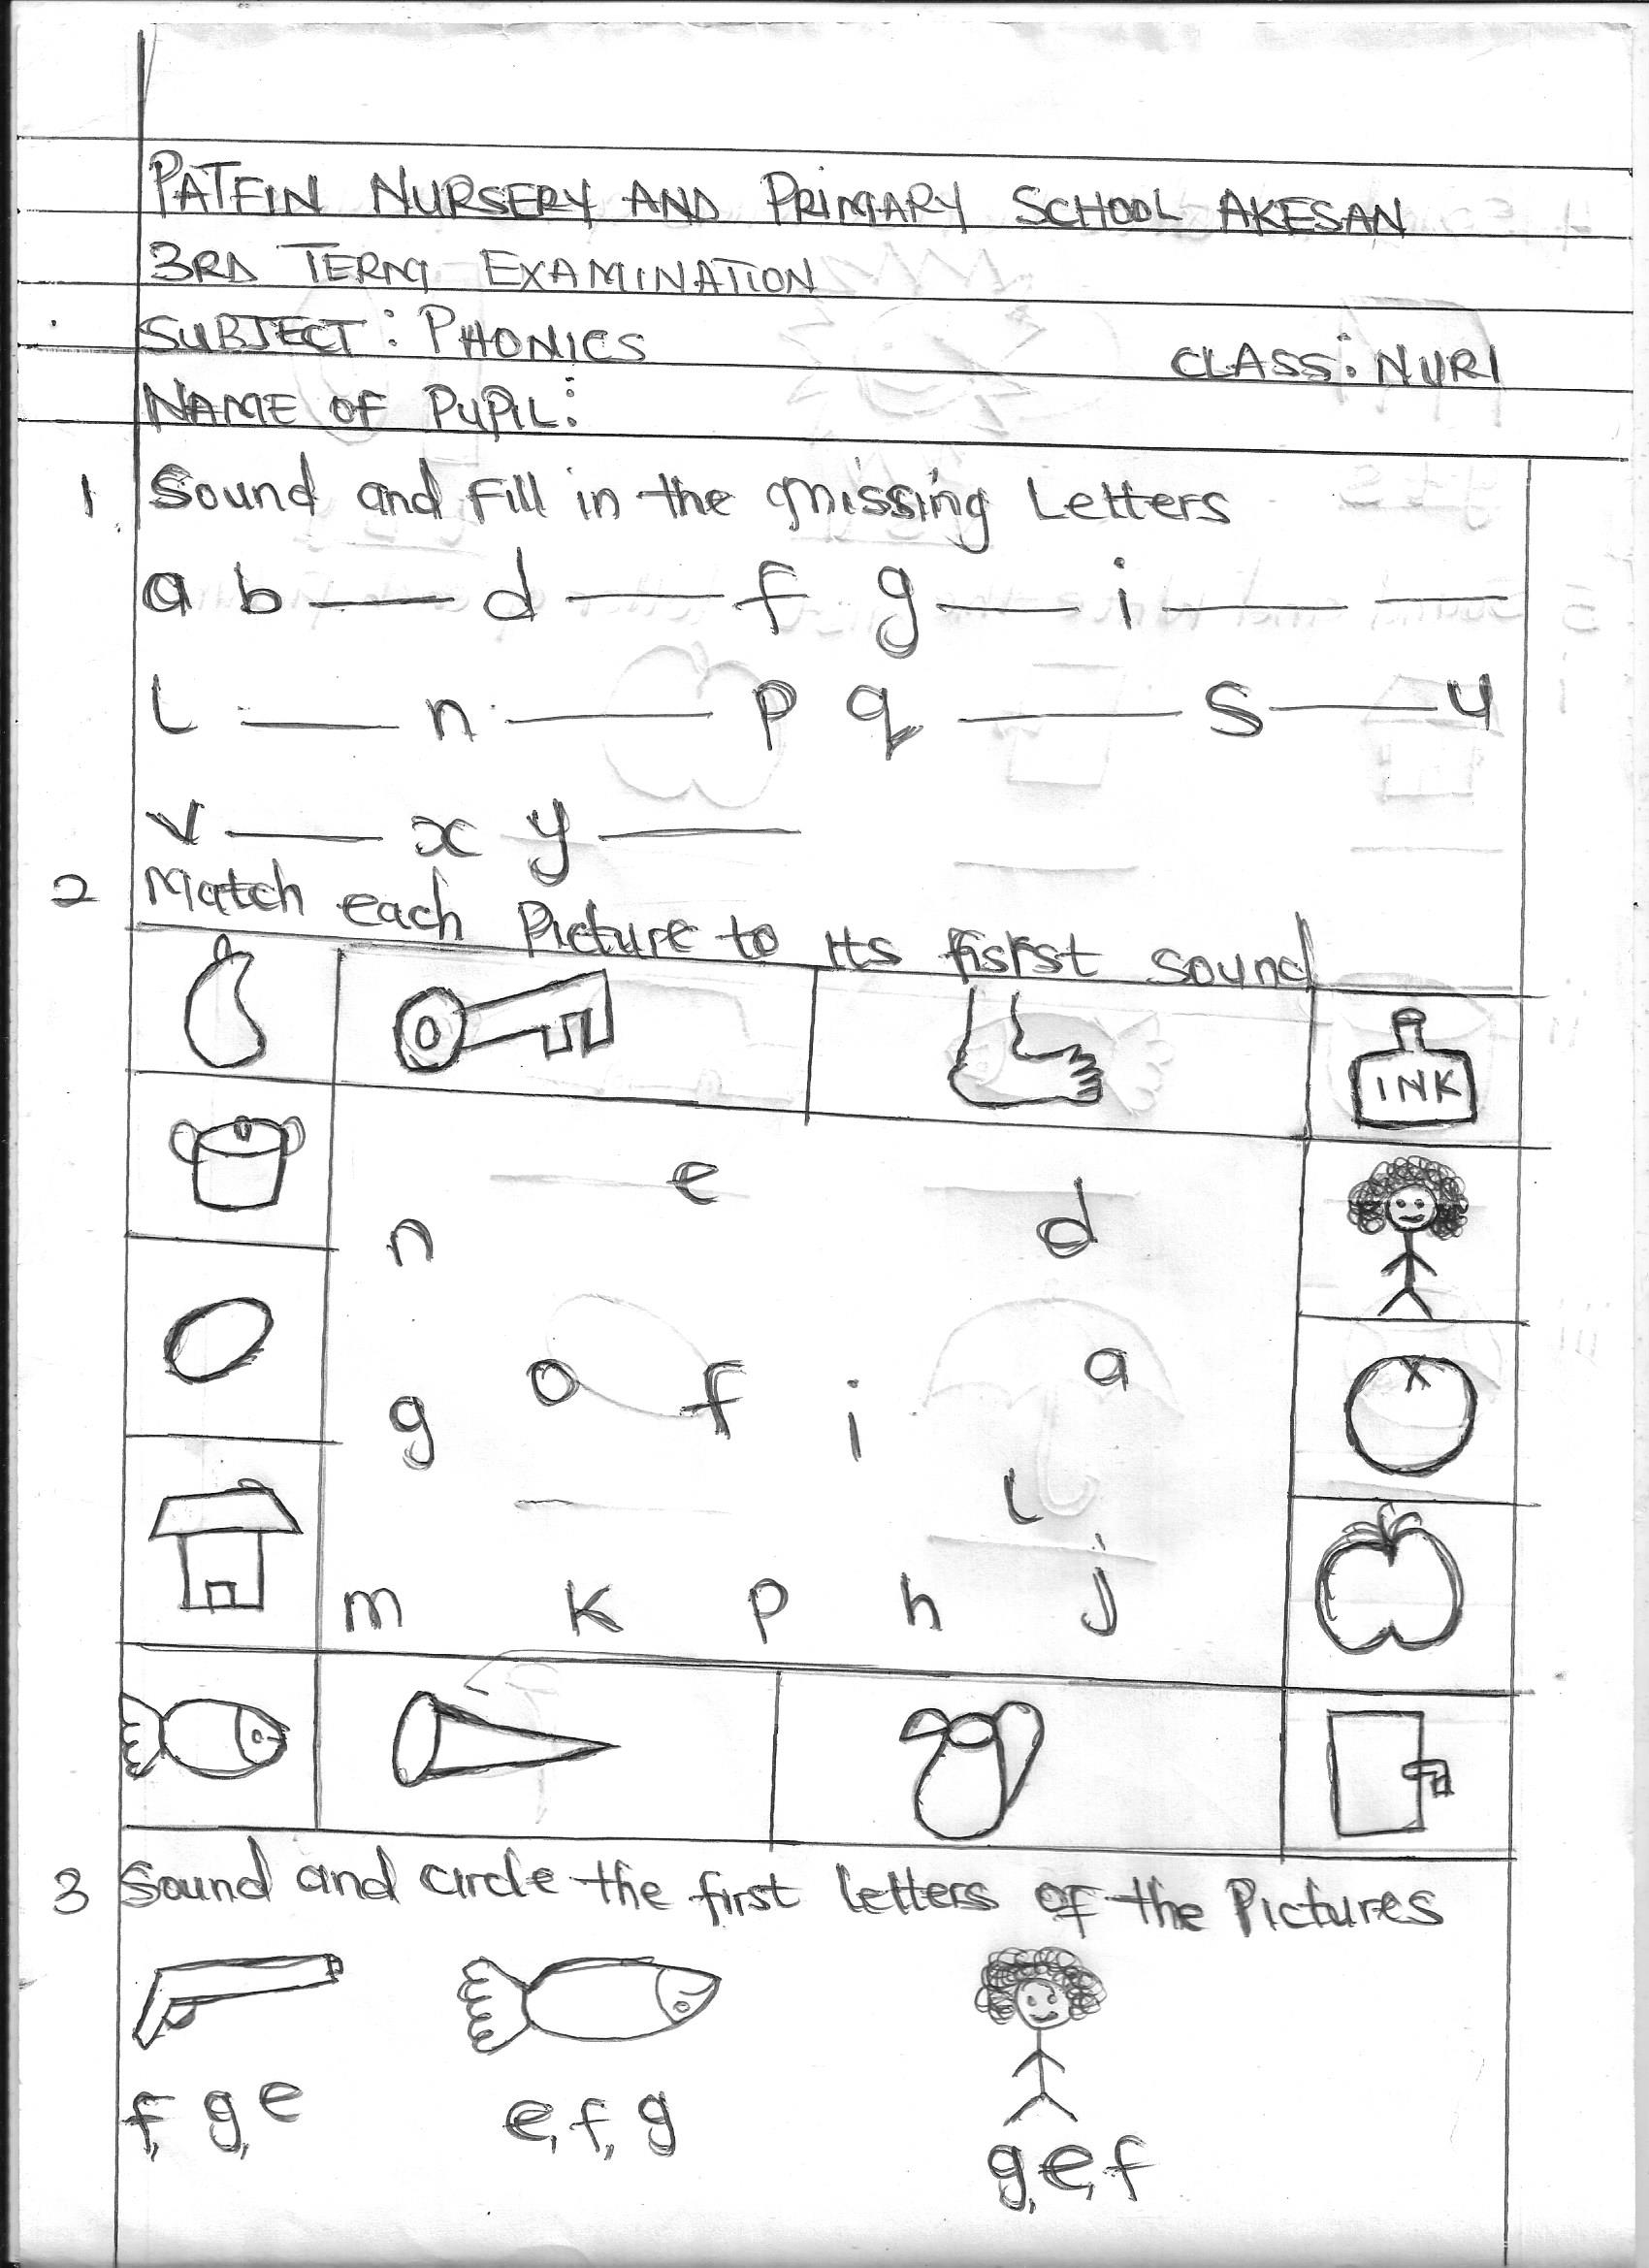 PATFIN NURSERY AND PRIMARY SCHOOL AKESAN
3RD TERM EXAMINATION
SUBJECT: PHONICS CLASS: NUR1
NAME OF PUPIL:
1. Sound and Fill in the missing Letters
a b ___ d ___ f g ___ i ___ ___
l ___ n ___ p q ___ s ___ u
v ___ x y ___
2 Match each Picture to its fisrst sound
INK
n e d
g o f i a
l
m k p h j
3 Sound and circle the first letters of the Pictures
f, g, e e, f, g g, e, f